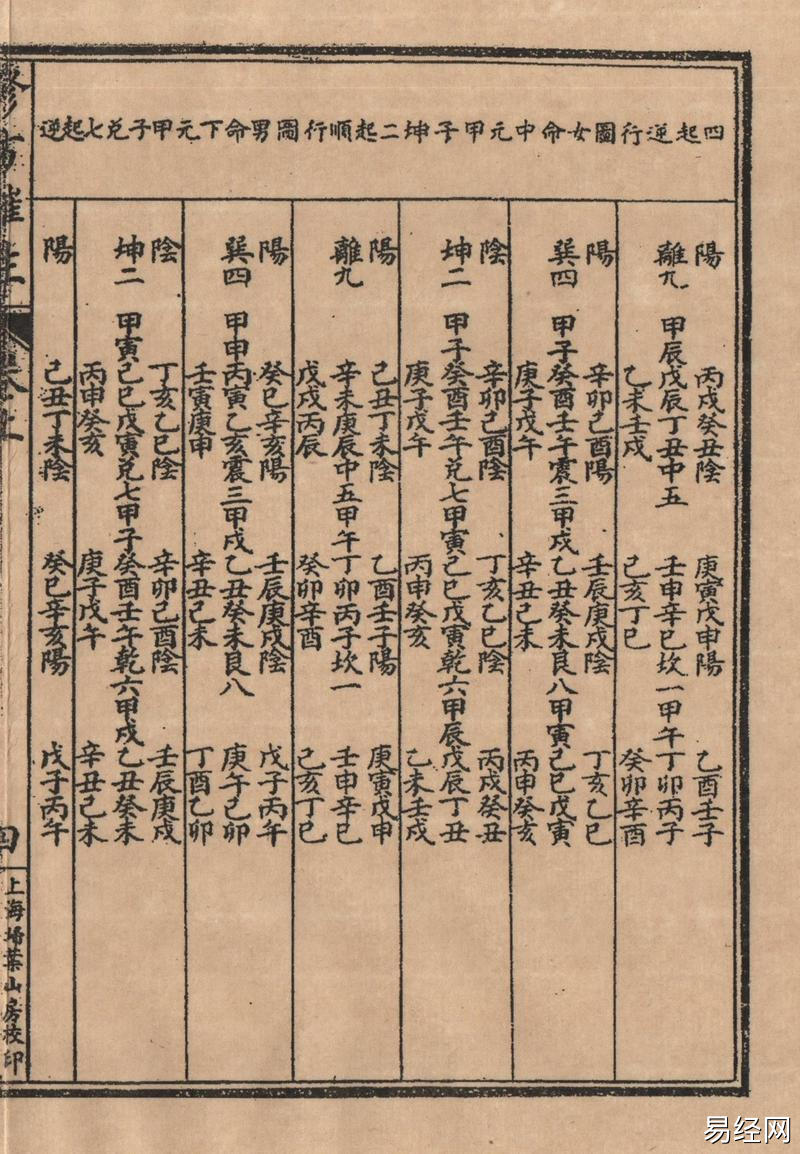 四起逆行圖女命中元甲子坤二起順行圖男命下元甲子兌七起逆
陽 丙戌癸丑陰 庚寅戊申陽 乙酉壬子
離九 甲辰戊辰丁丑中五 壬申辛巳坎一甲午丁卯丙子
乙未壬戌 己亥丁巳 癸卯辛酉
陽 辛卯己酉陽 壬辰庚戌陰 丁亥乙巳
巽四 甲子癸酉壬午震三甲戌乙丑癸未艮八甲寅己巳戊寅
庚子戊午 辛丑己未 丙申癸亥
陰 辛卯己酉陰 丁亥乙巳陰 丙戌癸丑
坤二 甲子癸酉壬午兌七甲寅己巳戊寅乾六甲辰戊辰丁丑
庚子戊午 丙申癸亥 乙未壬戌
陽 己丑丁未陰 乙酉壬子陽 庚寅戊申
離九 辛未庚辰中五甲午丁卯丙子坎一 壬申辛巳
戊戌丙辰 癸卯辛酉 己亥丁巳
陽 癸巳辛亥陽 壬辰庚戌陰 戊子丙午
巽四 甲申丙寅乙亥震三甲戌乙丑癸未艮八 庚午己卯
壬寅庚申 辛丑己未 丁酉乙卯
陰 丁亥乙巳陰 辛卯己酉陰 壬辰庚戌
坤二 甲寅己巳戊寅兌七甲子癸酉壬午乾六甲戌乙丑癸未
丙申癸亥 庚子戊午 辛丑己未
陽 己丑丁未陰 癸巳辛亥陽 戊子丙午
四
上海埽葉山房校印
易经网